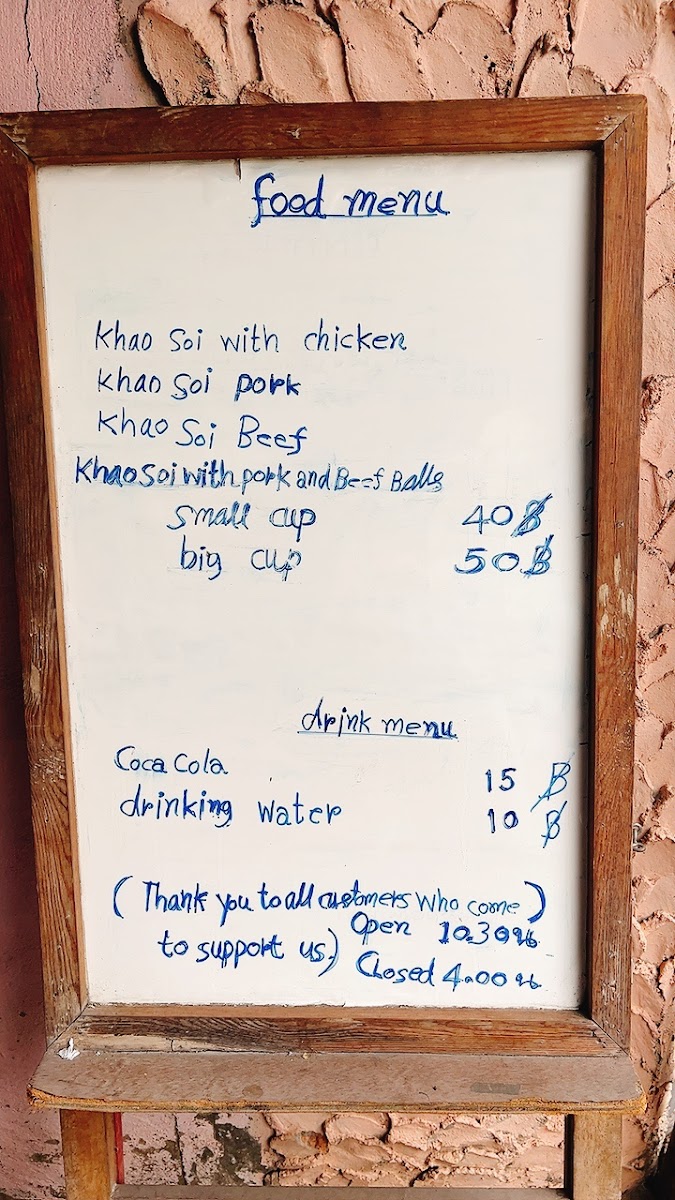 food menu
Khao Soi with chicken
Khao Soi pork
Khao Soi Beef
Khao Soi with pork and Beef Balls
small cup 40฿
big cup 50฿
drink menu
Coca Cola 15 ฿
drinking water 10 ฿
( Thank you to all customers who come )
to support us.)
Open 10.30 น.
Closed 4.00 น.